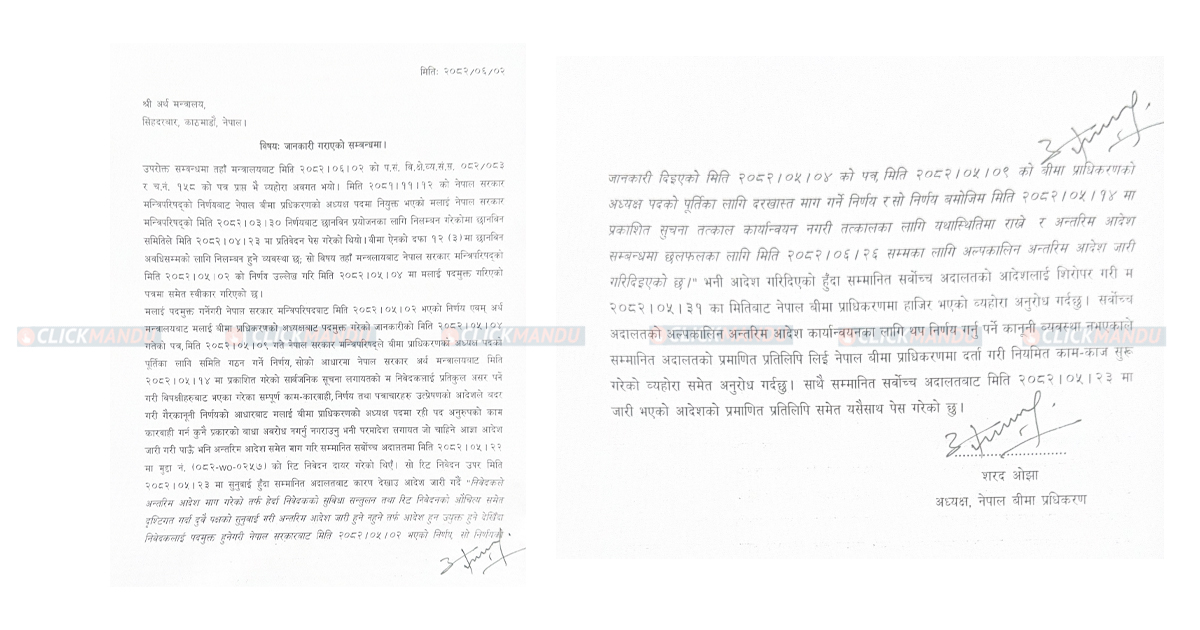 मितिः २०८२/०६/०२
श्री अर्थ मन्त्रालय,
सिंहदरबार, काठमाडौं, नेपाल।
विषयः जानकारी गराएको सम्बन्धमा।
उपरोक्त सम्बन्धमा तहाँ मन्त्रालयबाट मिति २०८२।०६।०२ को प.सं. वि.क्षे.व्य.सं.प्र. ०८२/०८३
र च.नं. १५८ को पत्र प्राप्त भै व्यहोरा अवगत भयो। मिति २०८१।११।१२ को नेपाल सरकार
मन्त्रिपरिषद्को निर्णयबाट नेपाल बीमा प्राधिकरणको अध्यक्ष पदमा नियुक्त भएको मलाई नेपाल सरकार
मन्त्रिपरिषद्को मिति २०८२।०३।३० निर्णयबाट छानबिन प्रयोजनका लागि निलम्बन गरेकोमा छानबिन
समितिले मिति २०८२।०४।२३ मा प्रतिवेदन पेस गरेको थियो। बीमा ऐनको दफा १२ (३) मा छानबिन
अवधिसम्मको लागि निलम्बन हुने व्यवस्था छ; सो विषय तहाँ मन्त्रालयबाट नेपाल सरकार मन्त्रिपरिषद्को
मिति २०८२।०५।०२ को निर्णय उल्लेख गरि मिति २०८२।०५।०४ मा मलाई पदमुक्त गरिएको
पत्रमा समेत स्वीकार गरिएको छ।
मलाई पदमुक्त गर्नेगरी नेपाल सरकार मन्त्रिपरिषदबाट मिति २०८२।०५।०२ भएको निर्णय एवम् अर्थ
मन्त्रालयबाट मलाई बीमा प्राधिकरणको अध्यक्षबाट पदमुक्त गरेको जानकारीको मिति २०८२।०५।०४
गतेका पत्र, मिति २०८२।०५।०९ गते नेपाल सरकार मन्त्रिपरिषद्ले बीमा प्राधिकरणको अध्यक्ष पदको
पूर्तिका लागि समिति गठन गर्ने निर्णय, सोको आधारमा नेपाल सरकार अर्थ मन्त्रालयबाट मिति
२०८२।०५।१४ मा प्रकाशित गरेको सार्वजनिक सूचना लगायतको म निवेदकलाई प्रतिकुल असर पर्ने
गरी विपक्षीहरुबाट भएका गरेका सम्पूर्ण काम-कारवाही, निर्णय तथा पत्राचारहरु उत्प्रेषणको आदेशले बदर
गरी गैरकानूनी निर्णयको आधारबाट मलाई बीमा प्राधिकरणको अध्यक्ष पदमा रही पद अनुरुपको काम
कारवाही गर्न कुनै प्रकारको बाधा अवरोध नगर्नु नगराउनु भनी परमादेश लगायत जो चाहिने आज्ञा आदेश
जारी गरी पाऊँ भनि अन्तरिम आदेश समेत माग गरि सम्मानित सर्वोच्च अदालतमा मिति २०८२।०५।२२
मा मुद्दा नं. (०८२-wo-०२५७) को रिट निवेदन दायर गरेको थिएँ। सो रिट निवेदन उपर मिति
२०८२।०५।२३ मा सुनुवाई हुँदा सम्मानित अदालतबाट कारण देखाउ आदेश जारी गर्दै "निवेदकले
अन्तरिम आदेश माग गरेको तर्फ हेर्दा निवेदकको सुविधा सन्तुलन तथा रिट निवेदनको औचित्य समेत
दृष्टिगत गर्दा दुवै पक्षको सुनुवाई गरी अन्तरिम आदेश जारी हुने नहुने तर्फ आदेश हुन उपयुक्त हुने देखिँदा
निवेदकलाई पदमुक्त हुनेगरी नेपाल सरकारबाट मिति २०८२।०५।०२ भएको निर्णय, सो निर्णयको
जानकारी दिइएको मिति २०८२।०५।०४ को पत्र, मिति २०८२।०५।०९ को बीमा प्राधिकरणको
अध्यक्ष पदको पूर्तिका लागि दरखास्त माग गर्ने निर्णय र सो निर्णय बमोजिम मिति २०८२।०५।१४ मा
प्रकाशित सुचना तत्काल कार्यान्वयन नगरी तत्कालका लागि यथास्थितिमा राखे र अन्तरिम आदेश
सम्बन्धमा छलफलका लागि मिति २०८२।०६।२६ सम्मका लागि अल्पकालिन अन्तरिम आदेश जारी
गरिदिइएको छ।" भनी आदेश गरिदिएको हुँदा सम्मानित सर्वोच्च अदालतको आदेशलाई शिरोपर गरी म
२०८२।०५।३१ का मितिबाट नेपाल बीमा प्राधिकरणमा हाजिर भएको व्यहोरा अनुरोध गर्दछु। सर्वोच्च
अदालतको अल्पकालिन अन्तरिम आदेश कार्यान्वयनका लागि थप निर्णय गर्नु पर्ने कानूनी व्यवस्था नभएकाले
सम्मानित अदालतको प्रमाणित प्रतिलिपि लिई नेपाल बीमा प्राधिकरणमा दर्ता गरी नियमित काम-काज सुरू
गरेको व्यहोरा समेत अनुरोध गर्दछु। साथै सम्मानित सर्वोच्च अदालतबाट मिति २०८२।०५।२३ मा
जारी भएको आदेशको प्रमाणित प्रतिलिपि समेत यसैसाथ पेस गरेको छु।
शरद ओझा
अध्यक्ष, नेपाल बीमा प्राधिकरण
CLICKMANDU CLICKMANDU CLICKMANDU CLICKMANDU CLICKMANDU CLICKMANDU